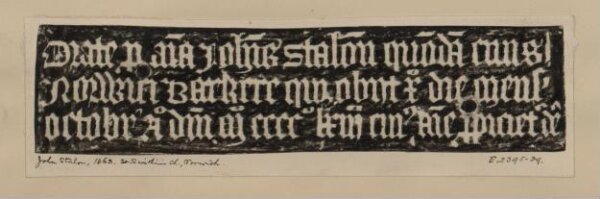 Orate p aīa Johīs Stalōn quōdā ciuis
Norwici Barkere qui obijt x° die mens̄
octobr A° dm̄ M cccc° lxiij cui' aīe ppiciet' de'
John Stalon, 1463. St Swithin's Ch, Norwich.
E.2395-29.